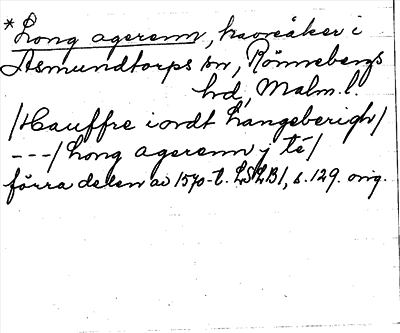 *Long ageremn, havreåker i
Asmundtorps sn, Rönnebergs
hd, Malm.l.
/Hauffre iordt Langeberigh/
---/long ageremn j té/
förra delen av 1570-t. LSLB1, s.129. orig.